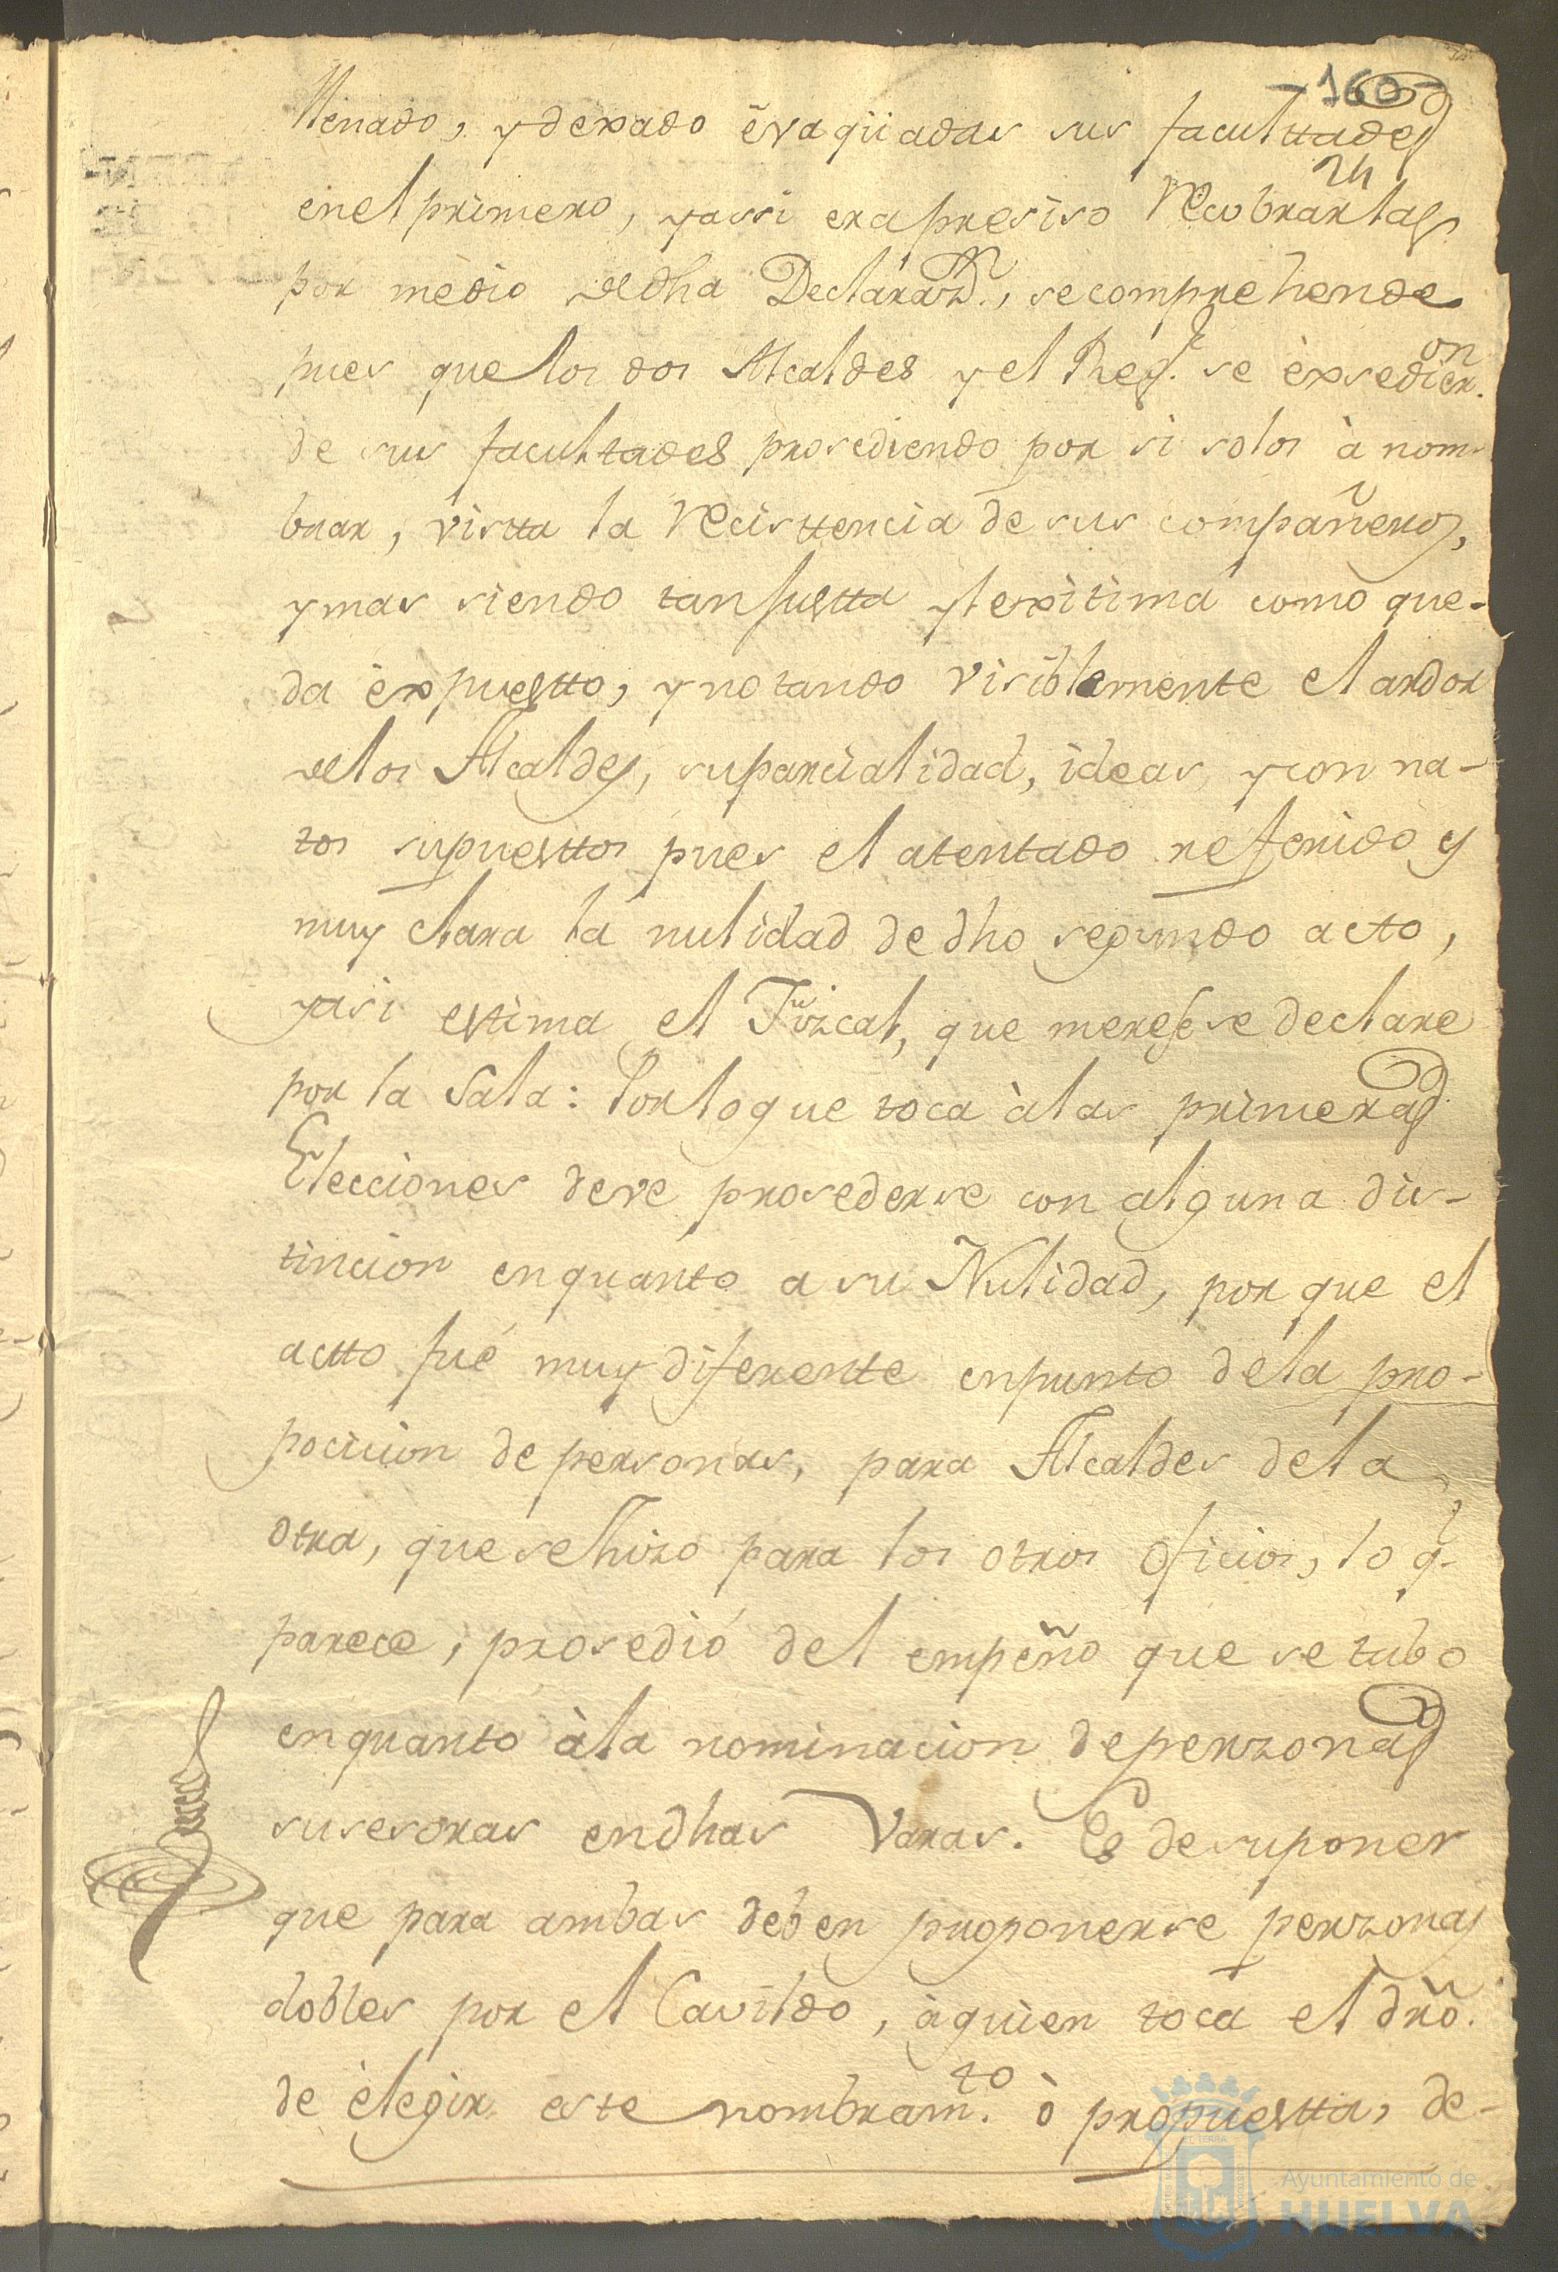 -160-
24
llenado, y dexado èvaqüadas sus facultades
en el primero, y assi era presiso Recobrarlas
por medio de dha Declarazn., se comprehende
pues que los dos Alcaldes y el Regr. se èxsedieron.
de sus facultades prosediendo por si solos à nom-
brar, vistta la Recisttencia de sus compañeros,
y mas siendo tan justta y lexitima como que-
da èxpuestto, y notando visiblemente el ardor
de los Alcaldes, su parcialidad, ideas, y con na-
tos supuesttos pues el atentado referido es
muy clara la nulidad de dho segundo acto,
y asi estima el Fizcal, que merese se declare
por la Sala: Por lo que toca à las primeras
Elecciones deve prosederse con alguna dis-
tincion en quanto a su Nulidad, por que el
actto fué muy diferente en punto de la pro-
pocicion de personas, para Alcaldes de la
otra, que se hizo para los otros oficios, lo q.
parece, prosedió del empeño que se tubo
en quanto à la nominacion de perzonas
susesoras en dhas Varas. Es de suponer
que para ambas deben proponerse perzonas
dobles por el Cavildo, à quien toca el dro.
de èlegir este nombramto. ò propuestta, de-
Ayuntamiento de
HUELVA